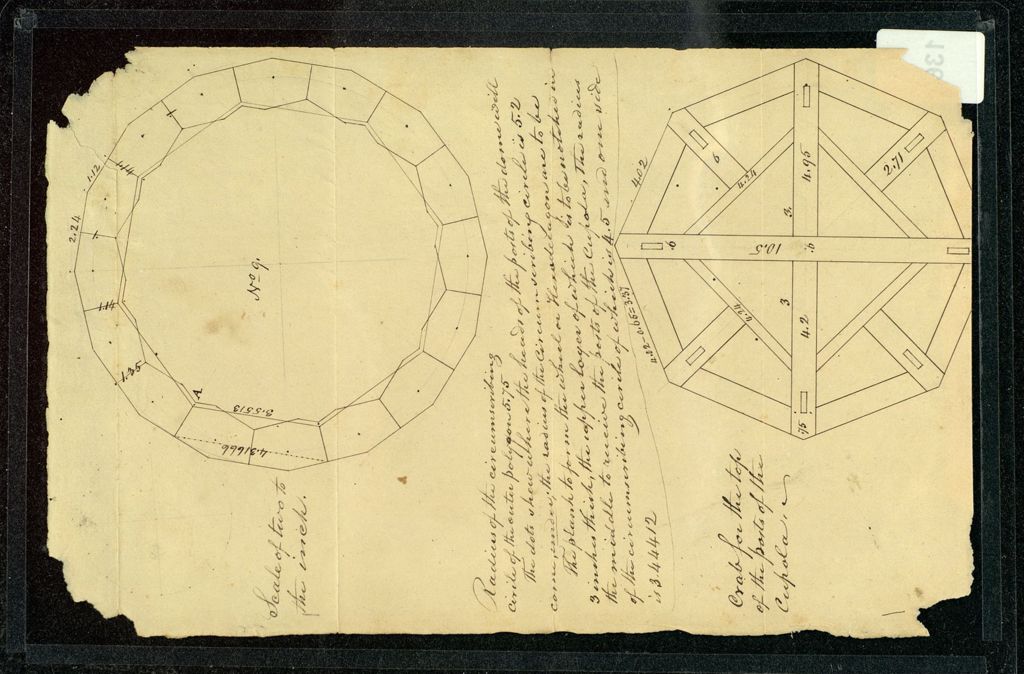 2.24
1.12
4/4
4/4
1.26
No 9.
A
3.5513
4.31666
Scale of two to
the inch.
Radius of the circumscribing
circle of the outer polygon 5.75
The dots shew where the heads of the posts of the dome will
come, under, the radius of the circumscribing circle is 5.2
The plank to form the wheel or Hexadecagon are to be
3 inches thick, the upper layer of which is to be notched in
the middle to receive the posts of the Cupola, The radius
of the circumscribing circle of which is 4.5 and one side
is 3.44412
4.02
4.02-0.65=3.37
6
4.24
4.95
2.71
3.
.6
10.5
.6
3
4.2
4.24
.75
Crab for the top
of the posts of the
Cupola.